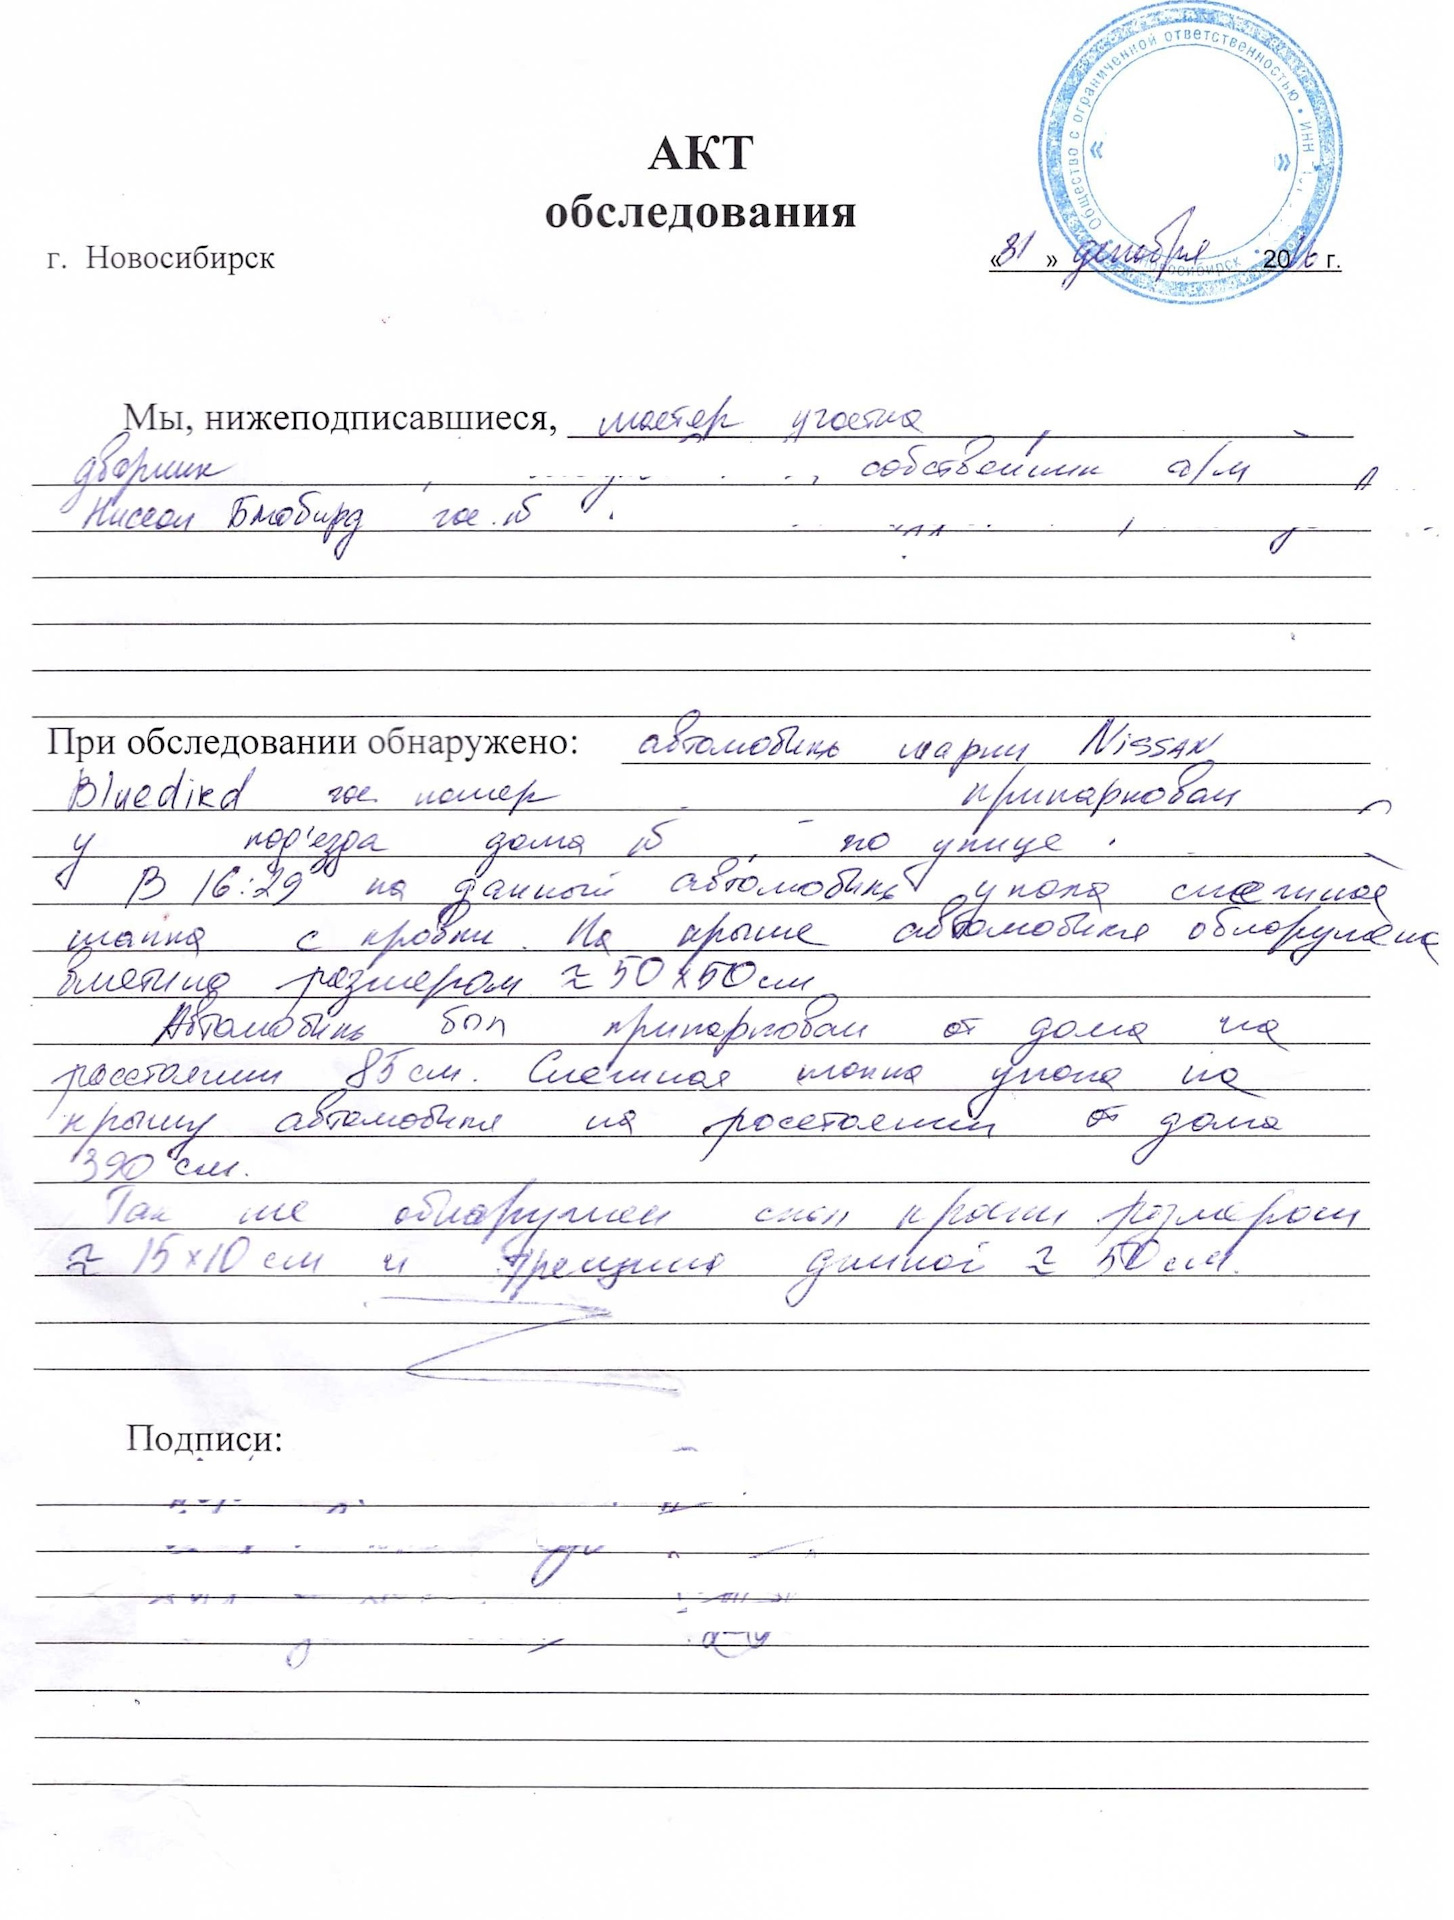 Общество с ограниченной ответственностью • ИНН
« »
Новосибирск
АКТ
обследования
г. Новосибирск «31» декабря 2016 г.
Мы, нижеподписавшиеся, мастер участка ,
дворник , , собственник а/м
Ниссан Блюбирд гос. №
При обследовании обнаружено: автомобиль марки Nissan
Bluedird гос. номер припаркован
у под'езда дома № , по улице
В 16:29 на данный автомобиль упала снежная
шапка с кровли. На крыше автомобиля обнаружена
вмятина размером ≈ 50х50 см
Автомобиль был припаркован от дома на
расстоянии 85 см. Снежная шапка упала на
крышу автомобиля на расстоянии от дома
390 см.
Так же обнаружен скол краски размером
≈ 15х10 см и трещина длиной ≈ 50 см.
Подписи: